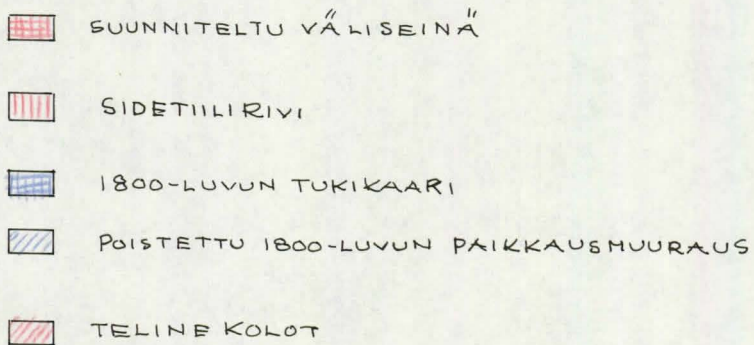 SUUNNITELTU VÄLISEINÄ
SIDETIILIRIVI
1800-LUVUN TUKIKAARI
POISTETTU 1800-LUVUN PAIKKAUSMUURAUS
TELINE KOLOT